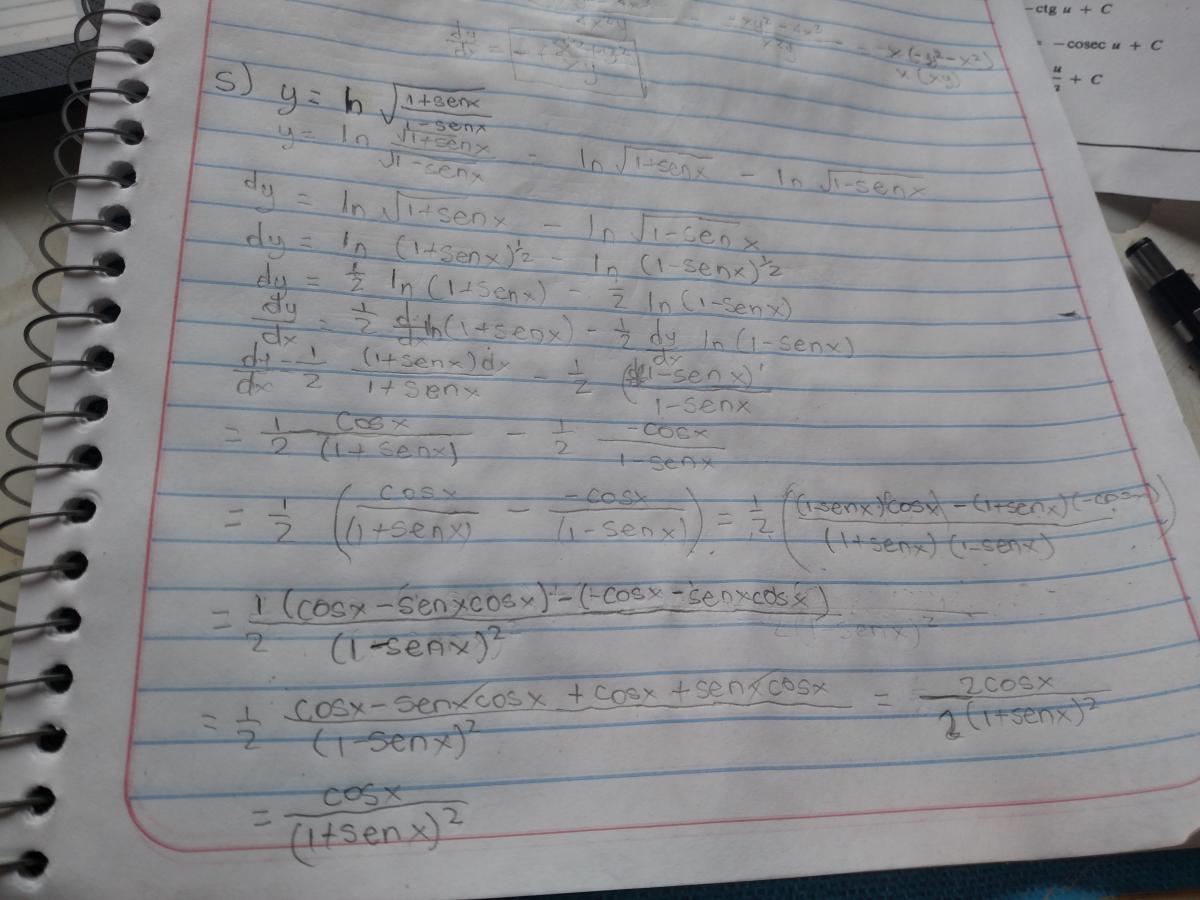 -ctg u + C
= -cosec u + C
u/a + C
dy/dx =
x(xy)
5) y = ln √(1+senx / 1-senx)
y = ln √1+senx / √1-senx - ln √1+senx - ln √1-senx
dy = ln √1+senx - ln √1-senx
dy = ln (1+senx)^½ - ln (1-senx)^½
dy = ½ ln (1+senx) - ½ ln (1-senx)
dy/dx = ½ d/dx ln(1+senx) - ½ dy/dx ln (1-senx)
dy/dx = 1/2 (1+senx)dx / 1+senx - 1/2 (1-senx)' / 1-senx
= 1/2 cosx / (1+senx) - 1/2 -cosx / 1-senx
= 1/2 (cosx / (1+senx) - -cosx / (1-senx)) = 1/2 ((1-senx)(cosx) - (1+senx)(-cosx) / (1+senx)(1-senx))
= 1/2 (cosx - senxcosx) - (-cosx - senxcosx) / (1-senx)²
= 1/2 cosx - senxcosx + cosx + senxcosx / (1-senx)² = 2cosx / 2(1+senx)²
= cosx / (1+senx)²